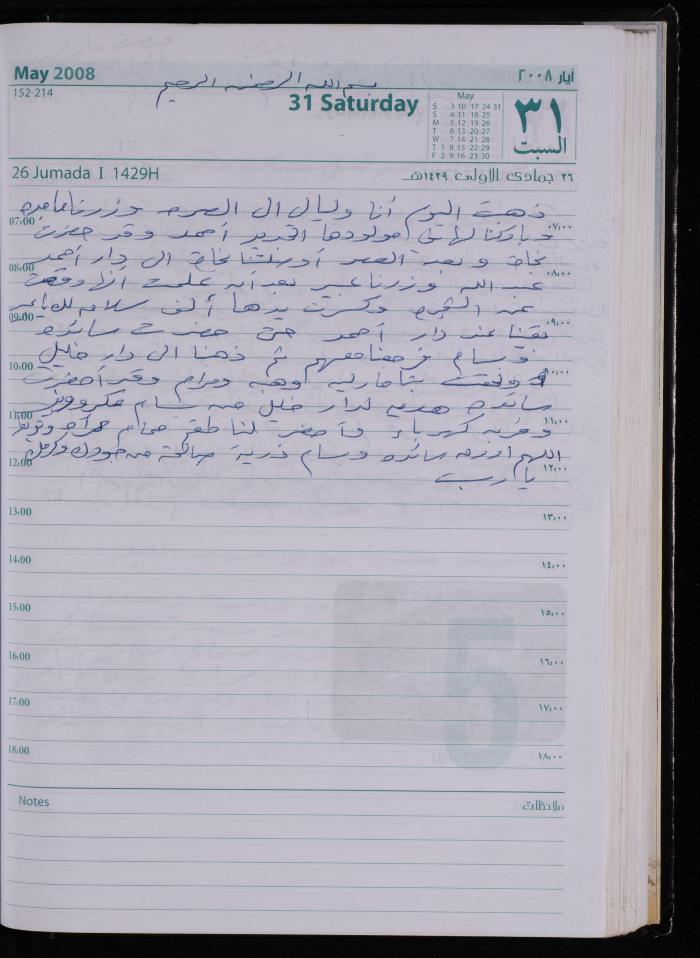 May 2008
أيار ٢٠٠٨
بسم الله الرحمن الرحيم
152-214
31 Saturday
May
S 3 10 17 24 31
S 4 11 18 25
M 5 12 19 26
T 6 13 20 27
W 7 14 21 28
T 1 8 15 22 29
F 2 9 16 23 30
٣١
السبت
26 Jumada I 1429H
٢٦ جمادى الاولى ١٤٢٩هـ
ذهبت اليوم أنا وليال الى وزرنا
07:00 ٠٧:٠٠
وباركنا لها مولودها الجديد أحمد وقد حضرت
نجاح وبعد العصر أوصلتنا نجاح الى دار أحمد
08:00 ٠٨:٠٠
عبد الله وزرنا عبير بعد أن علمت أنها وقعت
عن الشجرة وكسرت يدها ألف سلامه لك يا عبير
09:00 ٠٩:٠٠
بقينا عند دار أحمد حتى حضرت سائده
ووسام فرجعنا معهم ثم ذهبنا الى دار خليل
10:00 ١٠:٠٠
وقد أحضرت
سائده هديه لدار خليل
11:00 ١١:٠٠
كهرباء وأحضرت لنا طقم حمام
اللهم ارزق سائده ووسام ذرية صالحة من جودك وكرمك
12:00 ١٢:٠٠
يا رب
13:00 ١٣:٠٠
14:00 ١٤:٠٠
15:00 ١٥:٠٠
16:00 ١٦:٠٠
17:00 ١٧:٠٠
18:00 ١٨:٠٠
Notes
ملاحظات